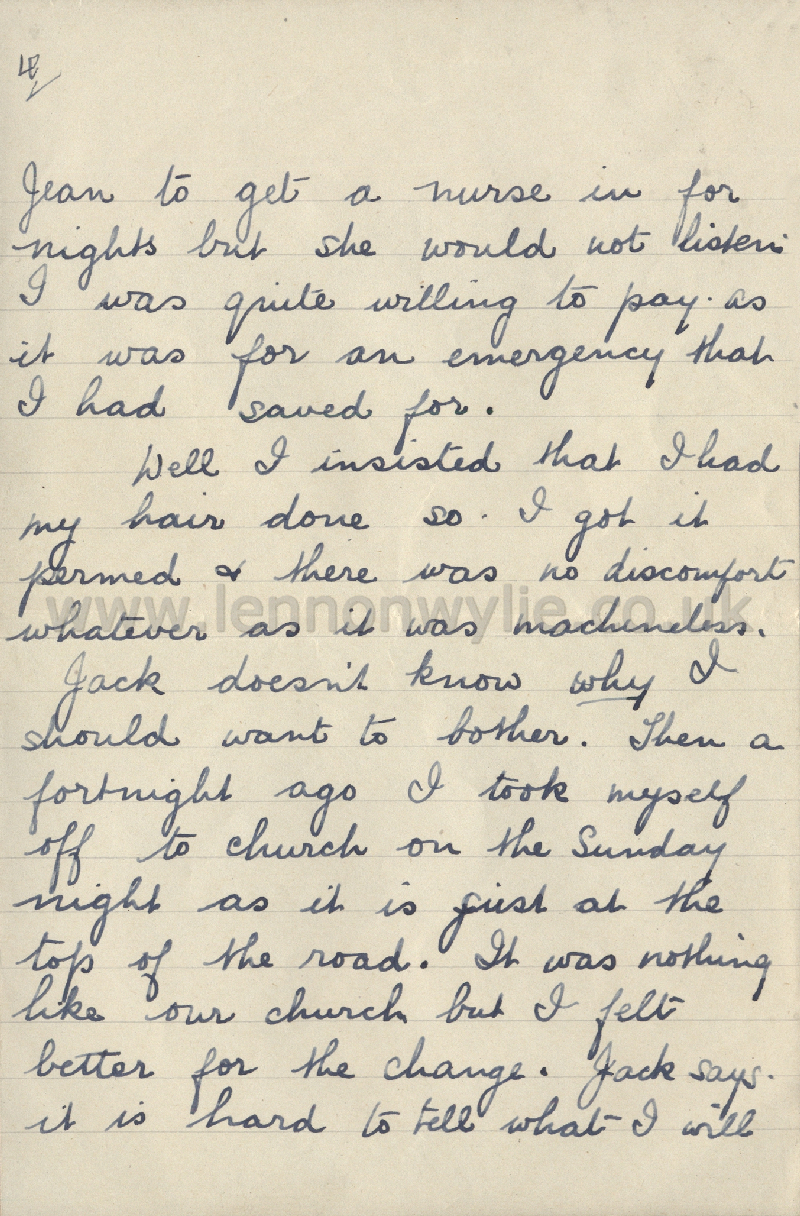 4/
Jean to get a nurse in for
nights but she would not listen
I was quite willing to pay. as
it was for an emergency that
I had saved for.
Well I insisted that I had
my hair done so. I got it
permed & there was no discomfort
www.lennonwylie.co.uk
whatever as it was machineless.
Jack doesn't know why I
should want to bother. Then a
fortnight ago I took myself
off to church on the Sunday
night as it is just at the
top of the road. It was nothing
like our church but I felt
better for the change. Jack says.
it is hard to tell what I will